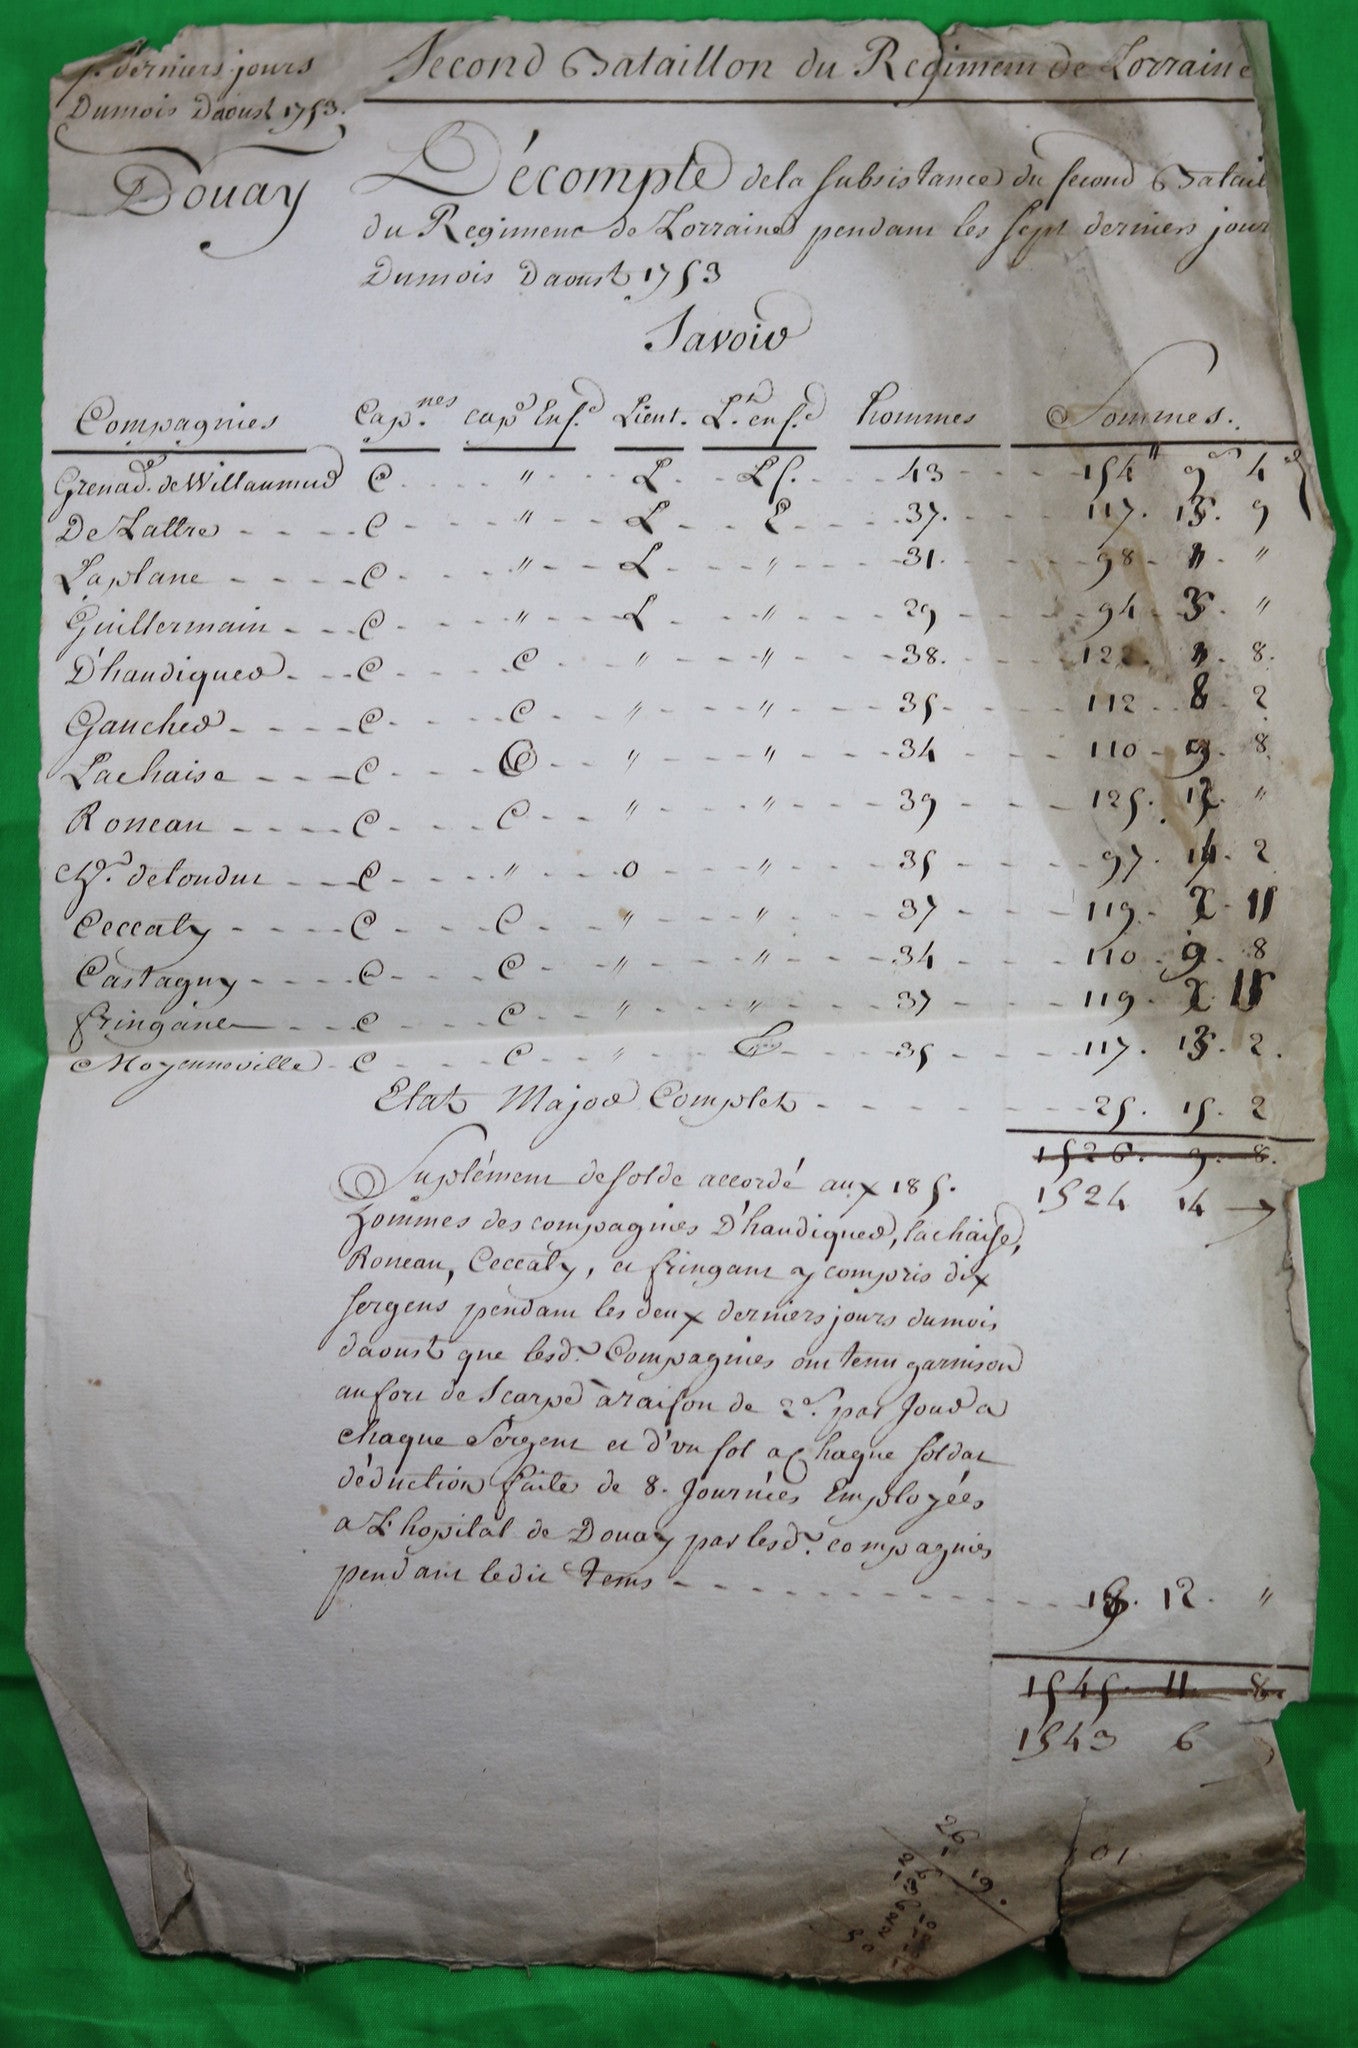 7. derniers jours
Dumois Daoust 1753.
Douay
Second Bataillon du Regiment de Lorraine
Décompte dela subsistance du second Batail
du Regiment de Lorraine pendant les sept derniers jour
Dumois Daoust 1753
Savoir
Compagnies Cap.nes cap.e Enf.d Lieut. L.t enf.d hommes Sommes.
Grenad. de Willaumud C " L L f. 43 154 " 9 s 4 d
De Lattre C " L E 37. 117. 13. 9
Laplane C " L " 31. 98 " "
Guillermain C " L " 29 94 3 "
D'handiquer C C " " 38. 122 8.
Gaucher C C " " 35 112 8 2
Lachaise C C " " 34 110 9 8.
Roneau C C " " 39 125. "
deloudun C " o " 35 97. 14. 2
Ceccaty C C " " 37 119 2 11
Castagny C C " " 34 110 9 8
fringane C C " " 37 119 2 11
Moyenneville C C " 35 117. 13. 2.
Etat Major Complet 25. 15. 2
1526. 9. 8.
1524 14
Suplément de solde accordé aux 185.
hommes des compagnies D'handiquer, lachaise,
Roneau, Ceccaty, et fringant y compris dix
sergens pendant les deux derniers jours dumois
daoust que lesd. Compagnies ont tenu garnison
au fort de Scarpe a raison de 2 s. par Jour a
chaque Sergent et d'un sol a Chaque soldat
déduction faite de 8. Journées Employées
a L'hopital de Douay par lesd. compagnies
pendant ledit tems 18. 12. "
1545. 11. 8.
1543 6
26
19.
01